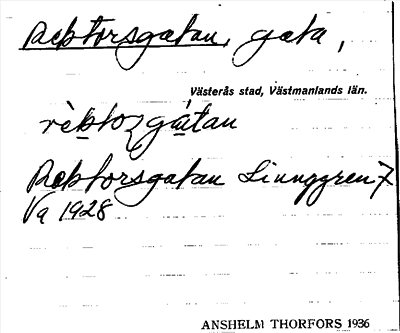 Rektorsgatan, gata,
Västerås stad, Västmanlands län.
rèktozgátan
Rektorsgatan Liunggren
Va 1928
ANSHELM THORFORS 1936